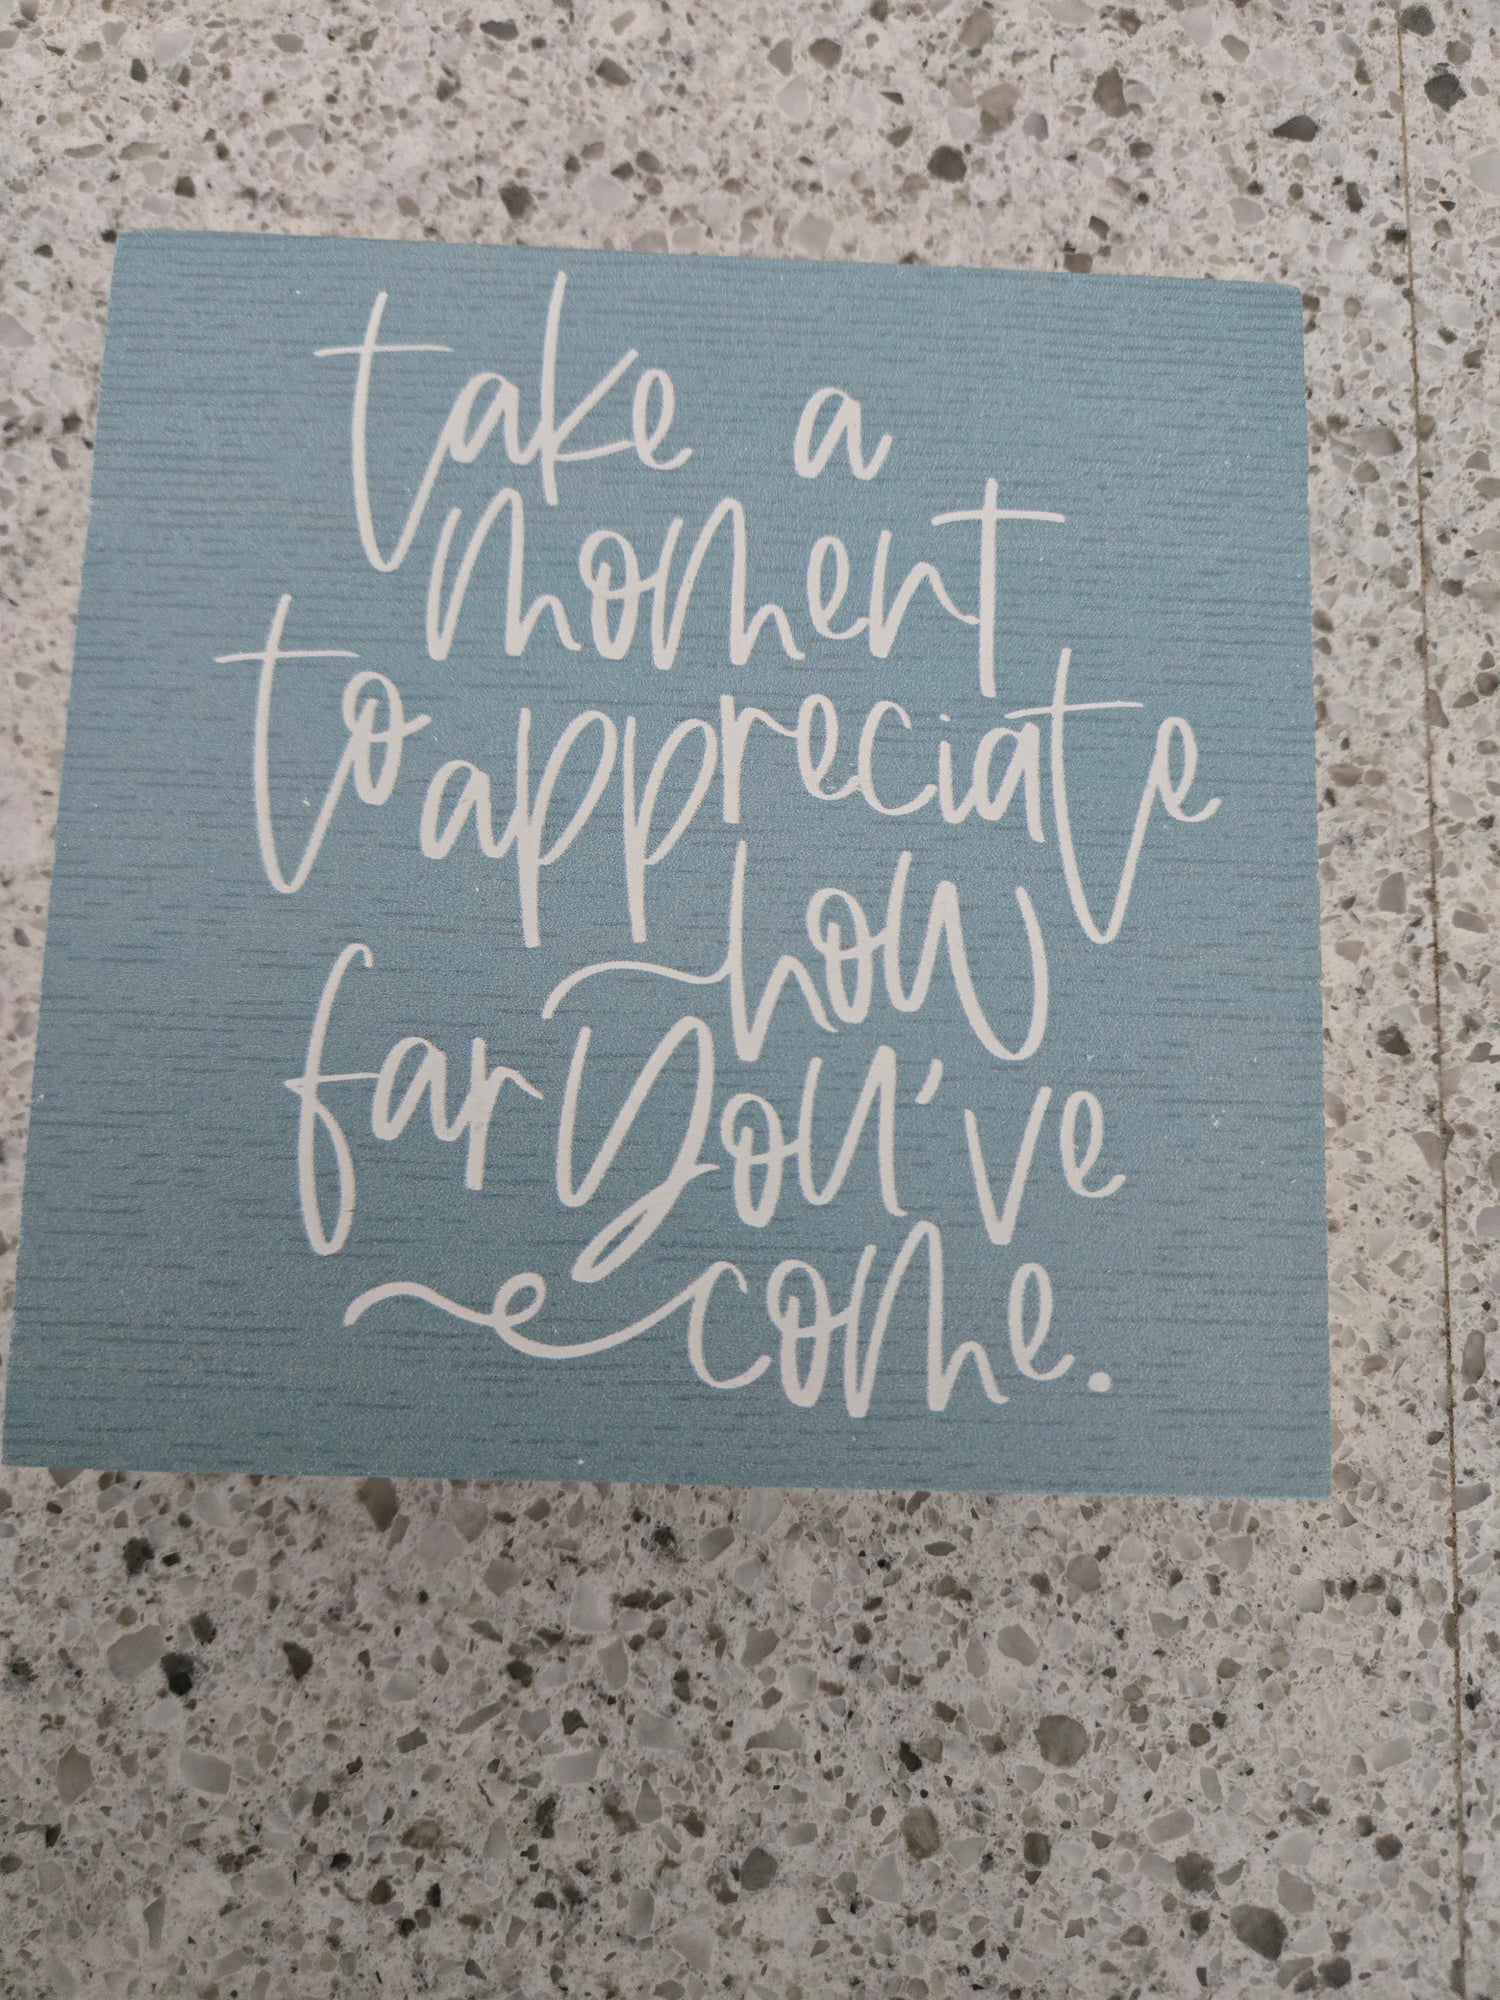 take a
moment
to appreciate
how
far you've
come.